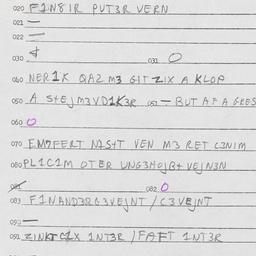 020 F1N8IR PUT3R VERN
021 —
022 —
030 4 031 O
040 NER1K QAZ M3 GIT ZIX A KLOP
050 A S+EJM3VD1K3R 051 — BUT AFA GRES
060 O
070 EM7FERT N1S+T VEN M3 RET C3NIM
080 PL1C1M OTER UNG3HOJB+ VEJN3N
081 082 O
083 F1NAND3RG3VEJNT / C3VEJNT
090 —
091 ZINKTC1X 1NT3R / FAFT 1NT3R